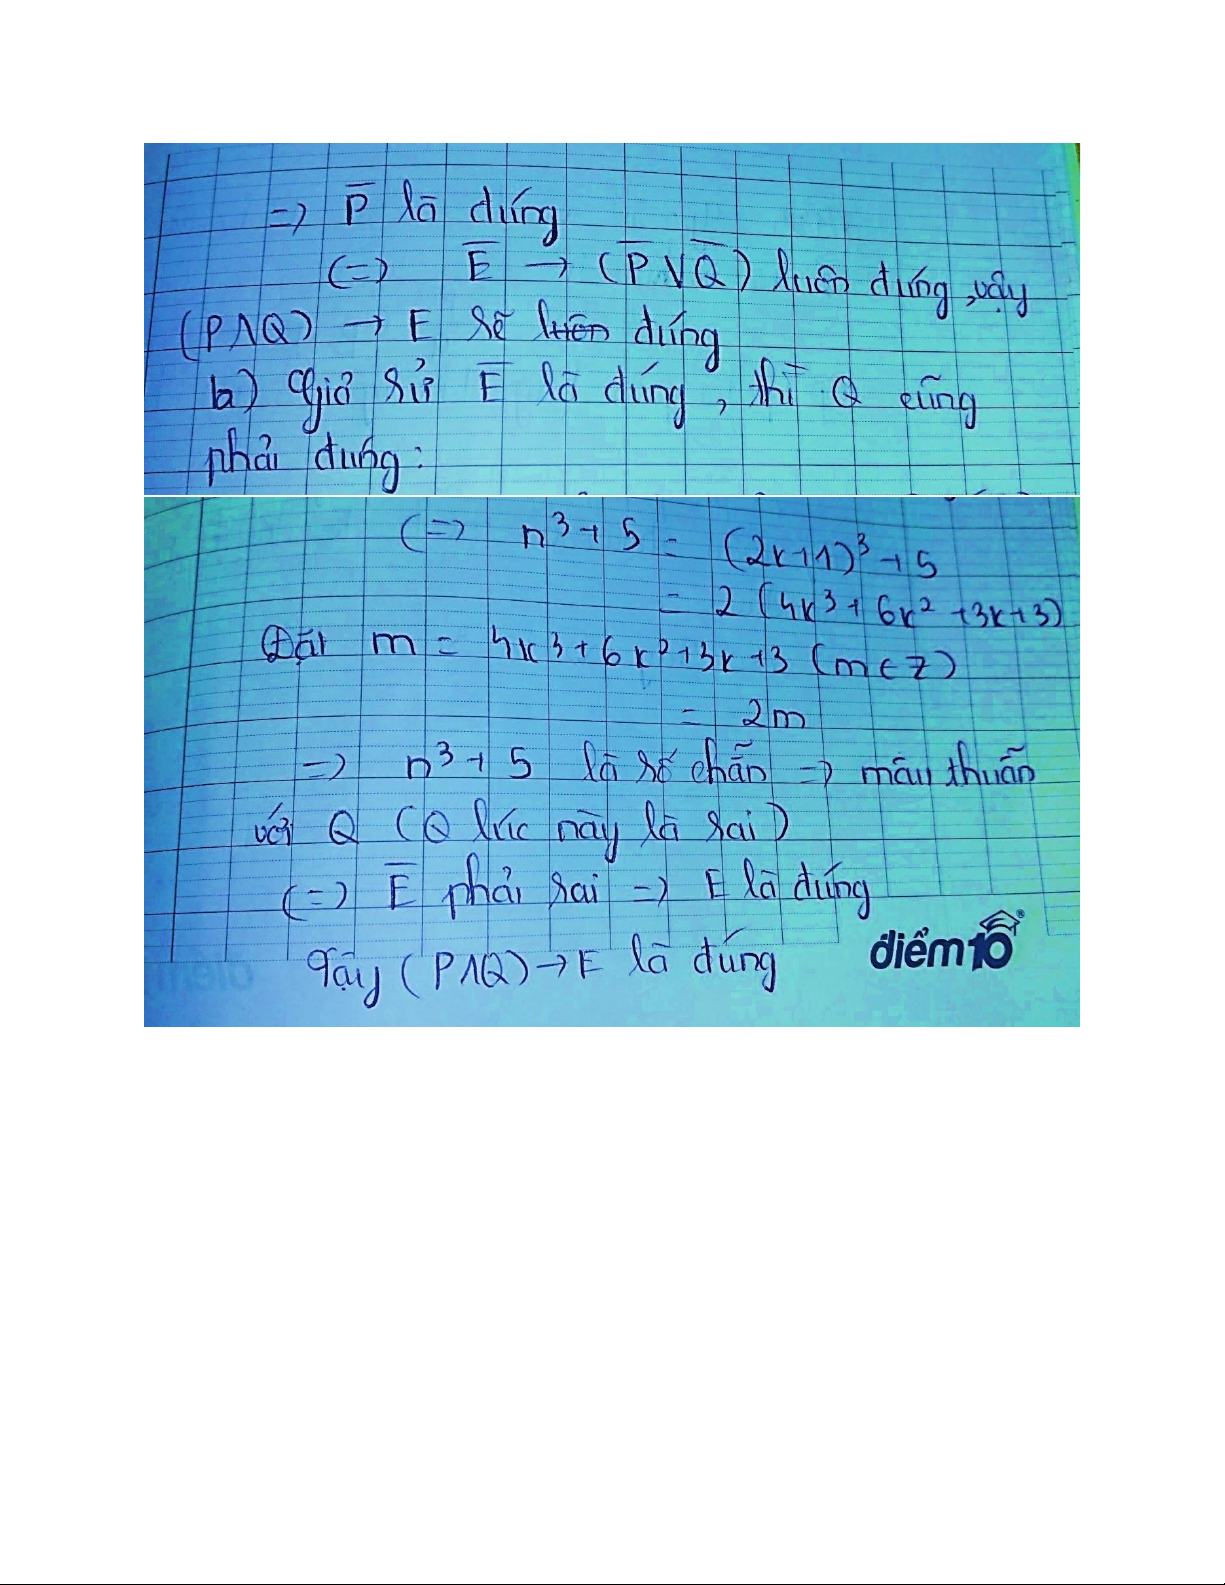 => P̅ là đúng
(=> E̅ → (P̅ V Q̅) luôn đúng, vậy
(P Λ Q) → E sẽ luôn đúng
b) Giả sử E̅ là đúng, thì Q cũng
phải đúng:
(=> n³ + 5 = (2k+1)³ + 5
= 2 (4k³ + 6k² + 3k + 3)
Đặt m = 4k³ + 6k² + 3k + 3 (m ∈ Z)
= 2m
=> n³ + 5 là số chẵn => mâu thuẫn
với Q (Q lúc này là sai)
(=> E̅ phải sai => E là đúng
Vậy (P Λ Q) → E là đúng
điểm10®